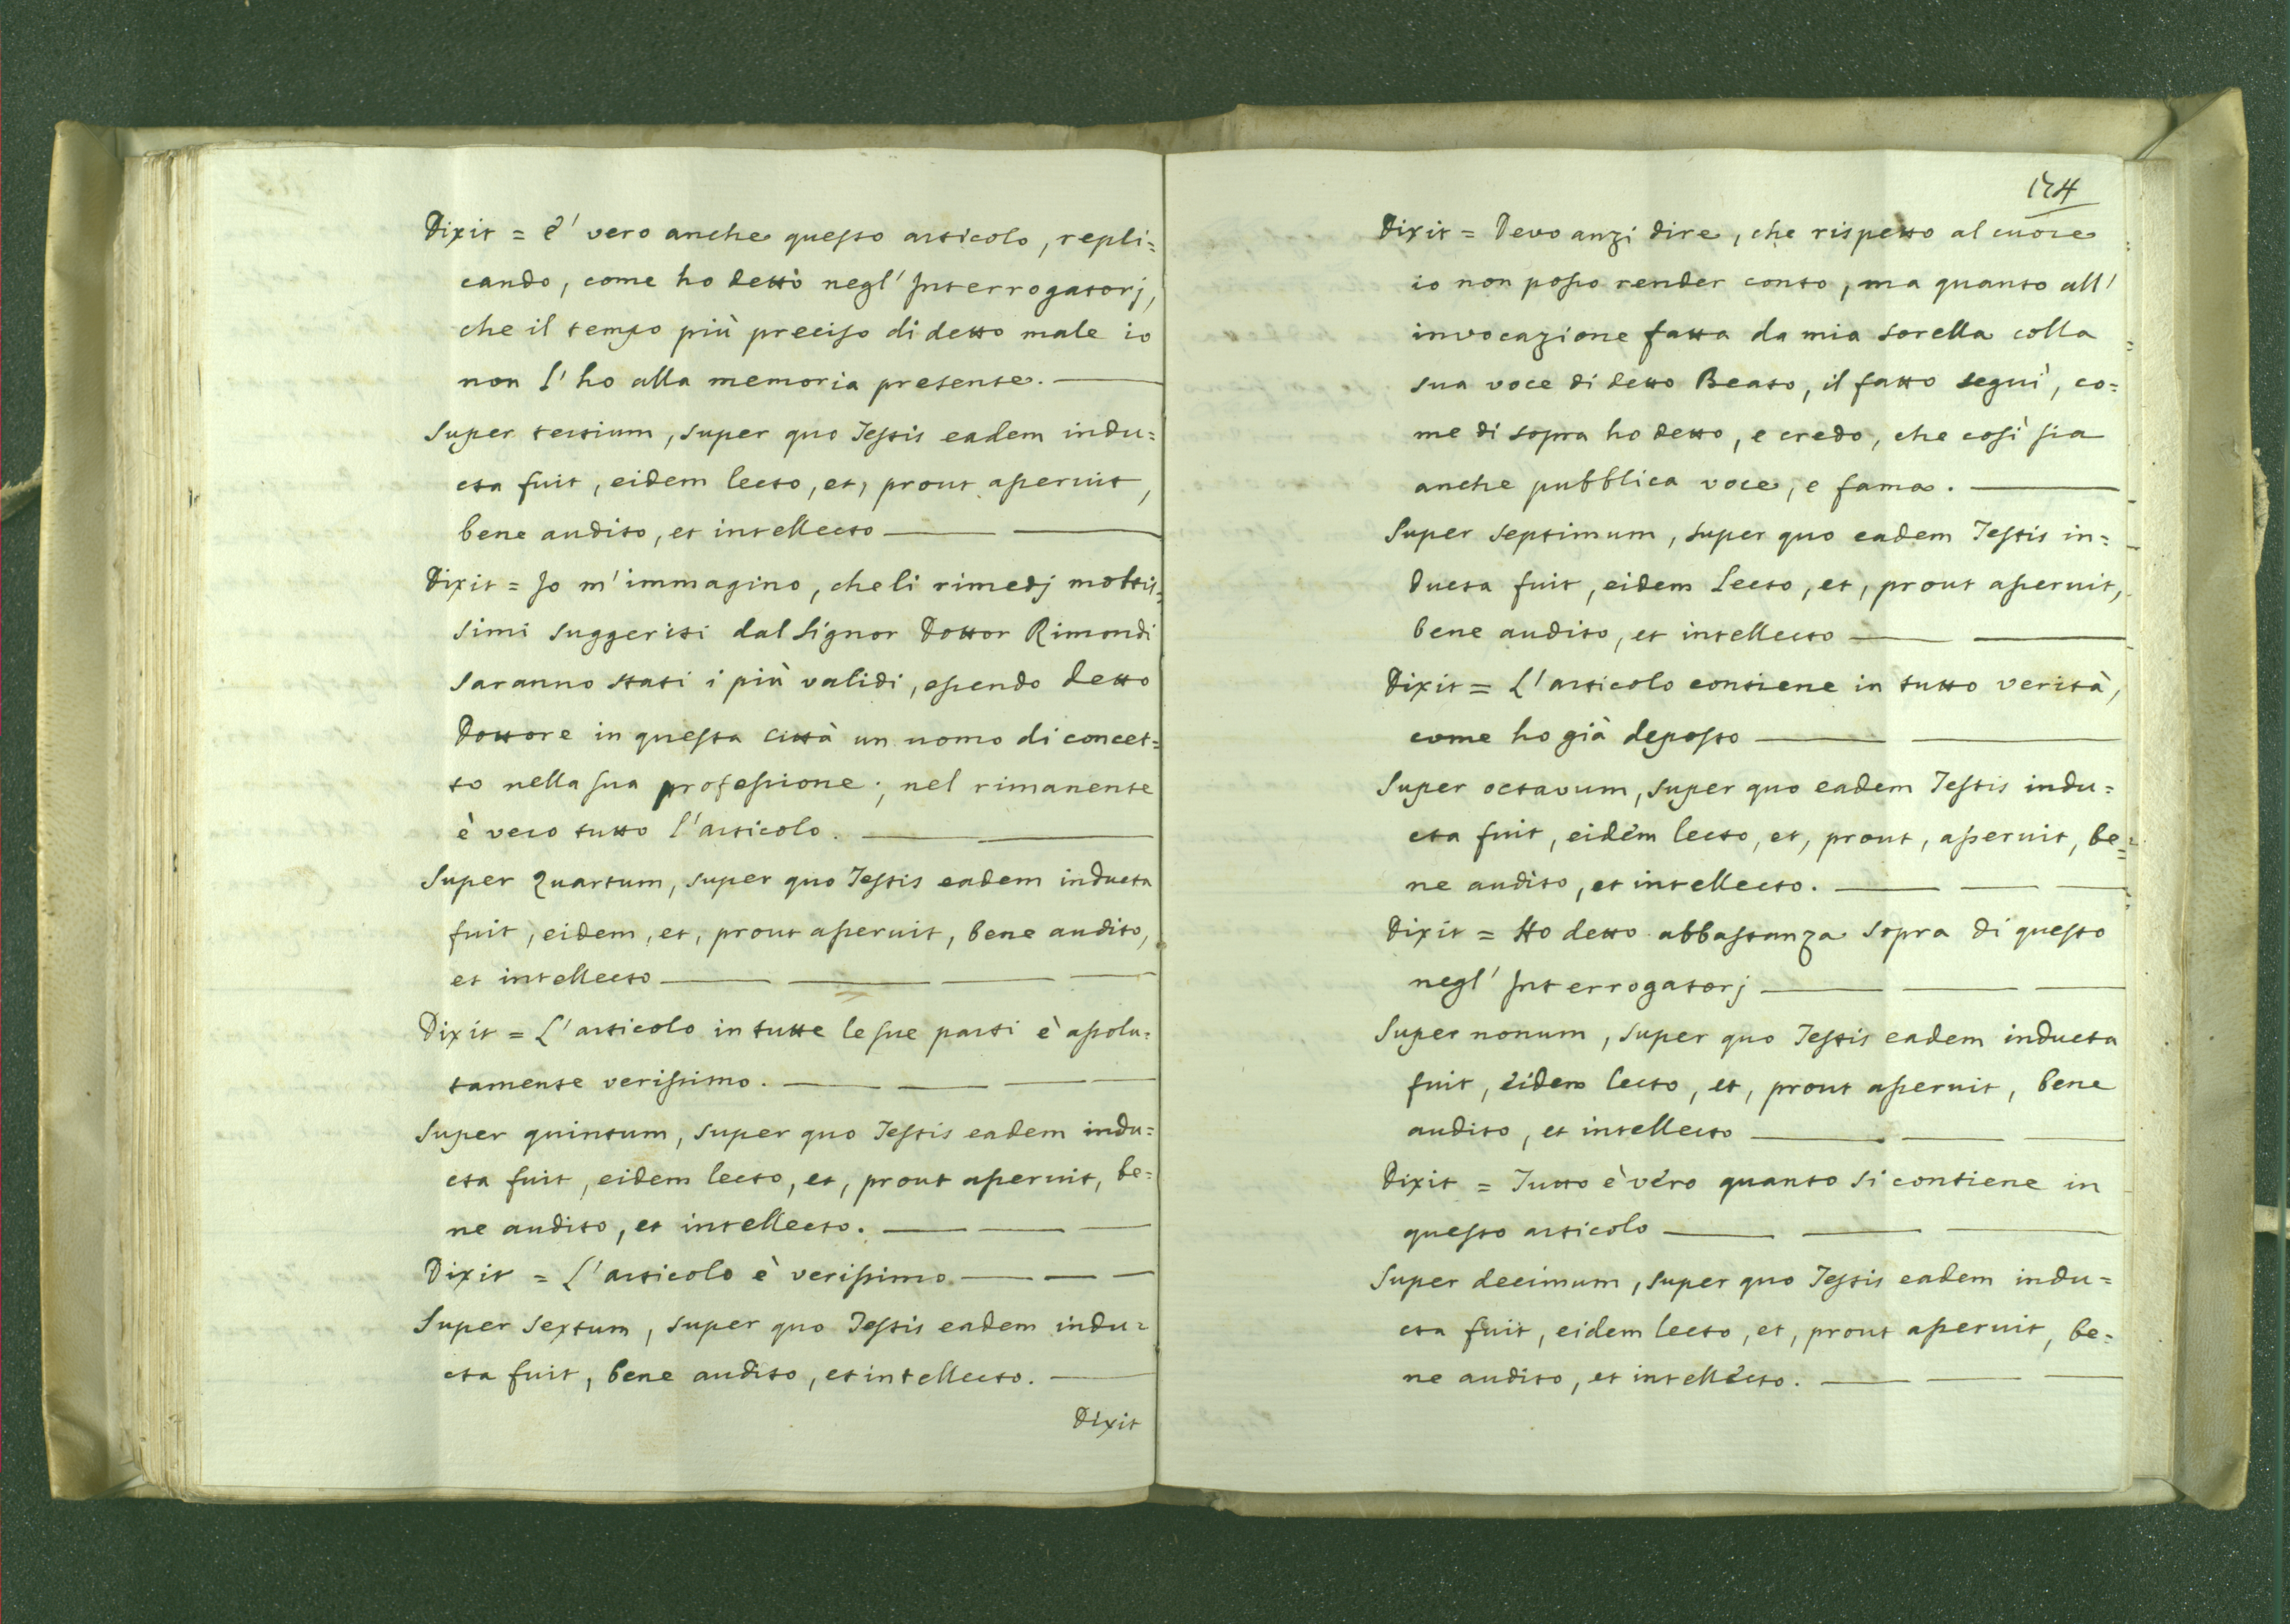 Dixit = è vero anche questo articolo, repli=
cando, come ho detto negl' Interrogatorj,
che il tempo più preciso di detto male io
non l'ho alla memoria presente.
Super tertium, super quo Testis eadem indu=
cta fuit, eidem lecto, et, prout asseruit,
bene audito, et intellecto
Dixit = Io m'immagino, che li rimedj moltis=
simi suggeriti dal Signor Dottor Rimondi
saranno stati i più validi, essendo detto
Dottore in questa città un uomo di concet=
to nella sua professione; nel rimanente
è vero tutto l'articolo.
Super Quartum, super quo Testis eadem inducta
fuit, eidem, et, prout asseruit, bene audito,
et intellecto
Dixit = L'articolo in tutte le sue parti è assolu=
tamente verissimo.
Super quintum, super quo Testis eadem indu=
cta fuit, eidem lecto, et, prout asseruit, be=
ne audito, et intellecto.
Dixit = L'articolo è verissimo
Super Sextum, super quo Testis eadem indu=
cta fuit, bene audito, et intellecto.
Dixit
174
Dixit = Devo anzi dire, che rispetto al cuore
io non posso render conto, ma quanto all'
invocazione fatta da mia sorella colla
sua voce di detto Beato, il fatto seguì, co=
me di sopra ho detto, e credo, che così sia
anche pubblica voce, e fama.
Super septimum, super quo eadem Testis in=
ducta fuit, eidem lecto, et, prout asseruit,
bene audito, et intellecto
Dixit = L'articolo contiene in tutto verità,
come ho già deposto
Super octavum, super quo eadem Testis indu=
cta fuit, eidem lecto, et, prout, asseruit, be=
ne audito, et intellecto.
Dixit = Ho detto abbastanza sopra di questo
negl' Interrogatorj
Super nonum, super quo Testis eadem inducta
fuit, eidem lecto, et, prout asseruit, bene
audito, et intellecto
Dixit = Tutto è vero quanto si contiene in
questo articolo
Super decimum, super quo Testis eadem indu=
cta fuit, eidem lecto, et, prout asseruit, be=
ne audito, et intellecto.